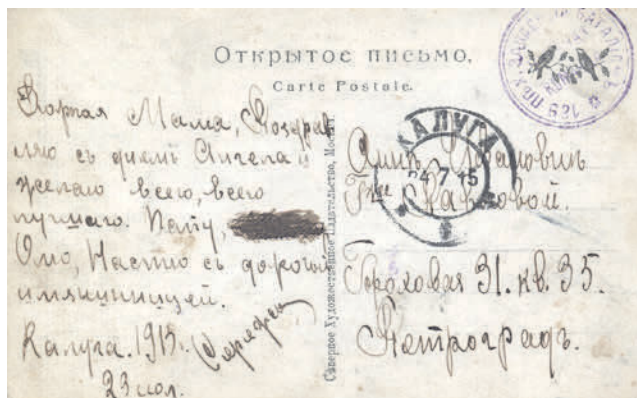 Открытое письмо.
Carte Postale.
Дорогая Мама, Поздрав
ляю съ днемъ Ангела и
желаю всего, всего
лучшаго. Папу,
Олю, Настю съ дорогой
имянинницей.
Калуга. 1915 г. Сережа
23 июл.
Северное Художественное Издательство, Москва.
КАЛУГА
24 7 15
Аннѣ Ивановнѣ
Гороховая 31. кв. 35.
Петроградъ.